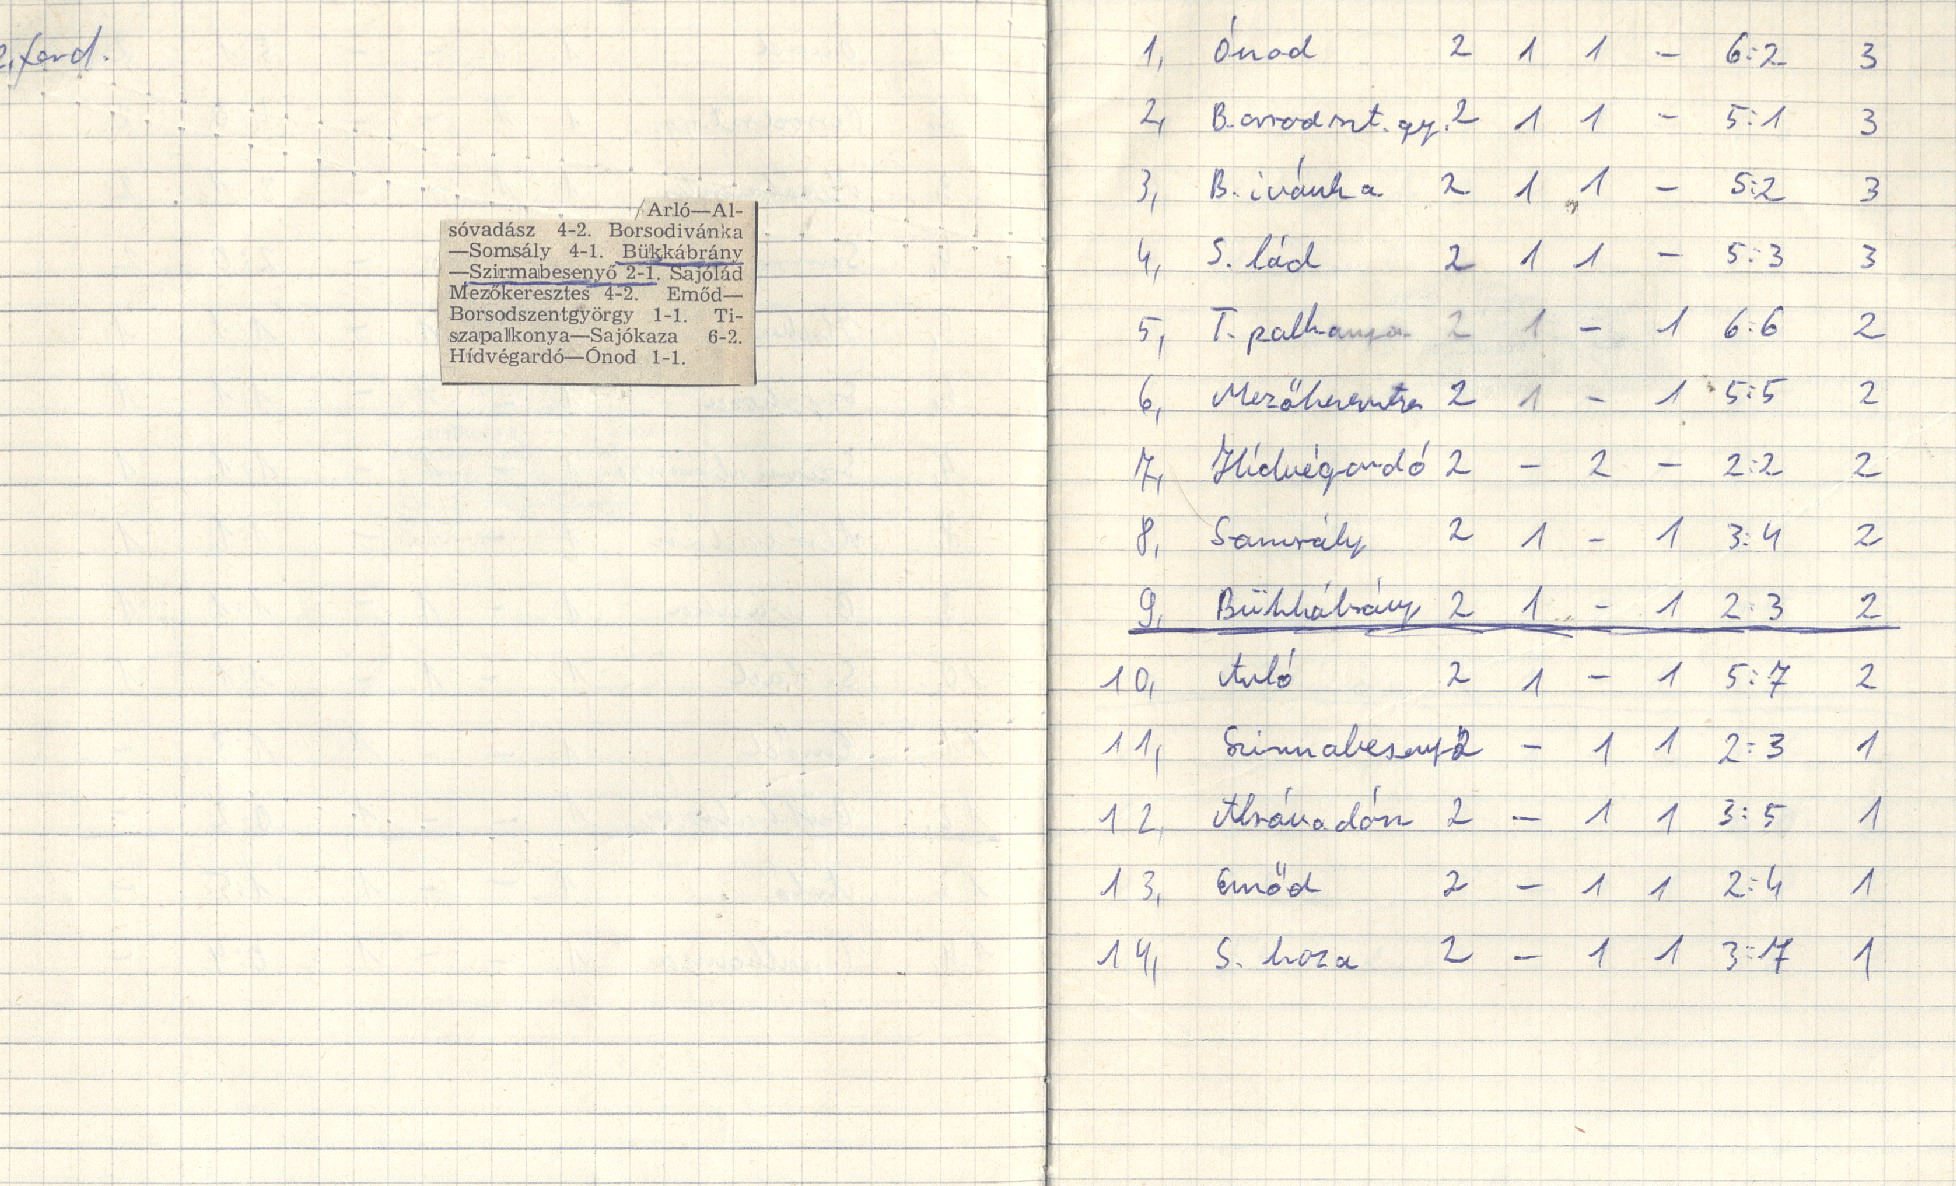 2. ford.
Arló—Al-
sóvadász 4-2. Borsodivánka
—Somsály 4-1. Bükkábrány
—Szirmabesenyő 2-1. Sajólád
Mezőkeresztes 4-2. Emőd—
Borsodszentgyörgy 1-1. Ti-
szapalkonya—Sajókaza 6-2.
Hídvégardó—Ónod 1-1.
1, Ónod 2 1 1 - 6:2 3
2, B.orsodszt.gy. 2 1 1 - 5:1 3
3, B. ivánka 2 1 1 - 5:2 3
4, S. lád 2 1 1 - 5:3 3
5, T. palkonya 2 1 - 1 6:6 2
6, Mezőkeresztes 2 1 - 1 5:5 2
7, Hídvégardó 2 - 2 - 2:2 2
8, Somsály 2 1 - 1 3:4 2
9, Bükkábrány 2 1 - 1 2:3 2
10, Arló 2 1 - 1 5:7 2
11, Szirmabesenyő 2 - 1 1 2:3 1
12, Alsóvadász 2 - 1 1 3:5 1
13, Emőd 2 - 1 1 2:4 1
14, S. kaza 2 - 1 1 3:7 1